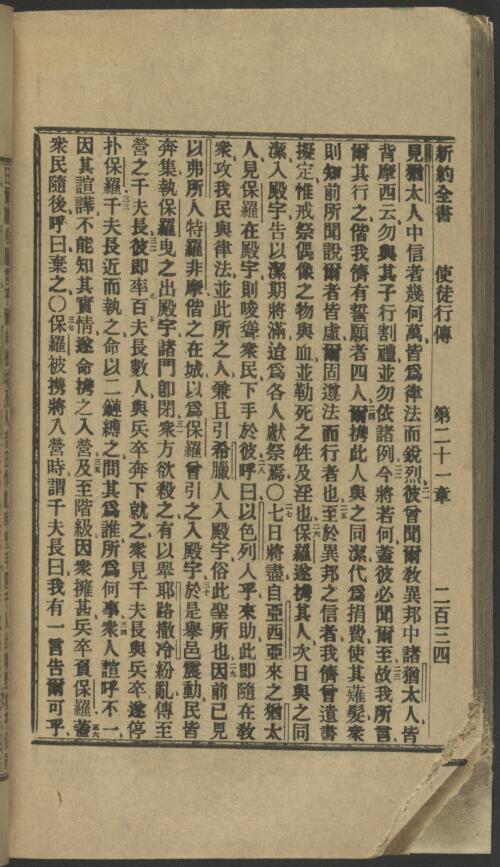 新約全書 使徒行傳 第二十一章 二百三四
見猶太人中信者幾何萬皆爲律法而銳烈彼曾聞爾教異邦中諸猶太人皆
背摩西云勿與其子行割禮並勿依諸例今將若何蓋彼必聞爾至故我所言
爾其行之偕我儕有誓願者四人爾攜此人與之同潔代爲捐費使其薙髮衆
則知前所聞說爾者皆虛爾固遵法而行者也至於異邦之信者我儕曾遺書
擬定惟戒祭偶像之物與血並勒死之牲及淫也保羅遂攜其人次日與之同
潔入殿宇告以潔期將滿迨爲各人獻祭焉〇七日將盡自亞西亞來之猶太
人見保羅在殿宇則唆聳衆民下手於彼呼曰以色列人乎來助此即隨在教
衆攻我民與律法並此所之人兼且引希臘人入殿宇俗此聖所也因前已見
以弗所人特羅非摩偕之在城以爲保羅曾引之入殿宇於是舉邑震動民皆
奔集執保羅曳之出殿宇諸門即閉衆方欲殺之有以舉耶路撒冷紛亂傳至
營之千夫長彼即率百夫長數人與兵卒奔下就之衆見千夫長與兵卒遂停
扑保羅千夫長近而執之命以二鏈縛之問其爲誰所爲何事衆人諠呼不一
因其諠譁不能知其實情遂命攜之入營及至階級因衆擁甚兵卒負保羅蓋
衆民隨後呼曰棄之〇保羅被攜將入營時謂千夫長曰我有一言告爾可乎